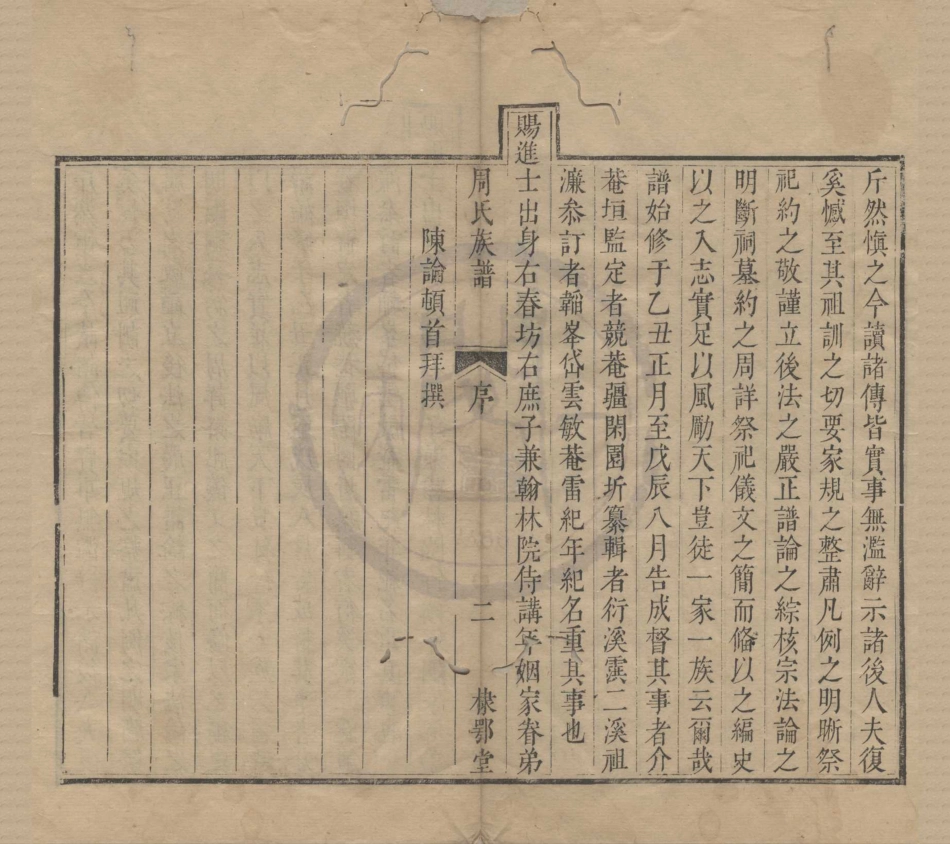 斤然愼之今讀諸傳皆實事無濫辭示諸後人夫復
奚憾至其祖訓之切要家規之整肅凡例之明晰祭
祀約之敬謹立後法之嚴正譜論之綜核宗法論之
明斷祠墓約之周詳祭祀儀文之簡而俻以之編史
以之入志實足以風勵天下豈徒一家一族云爾哉
譜始修于乙丑正月至戊辰八月告成督其事者介
菴垣監定者競菴疆閑園圻纂輯者衍溪霟二溪祖
濂叅訂者韜峯岱雲敏菴雷紀年紀名重其事也
賜進士出身右春坊右庶子兼翰林院侍講年姻家眷弟
周氏族譜 序 二 棣鄂堂
陳論頓首拜撰